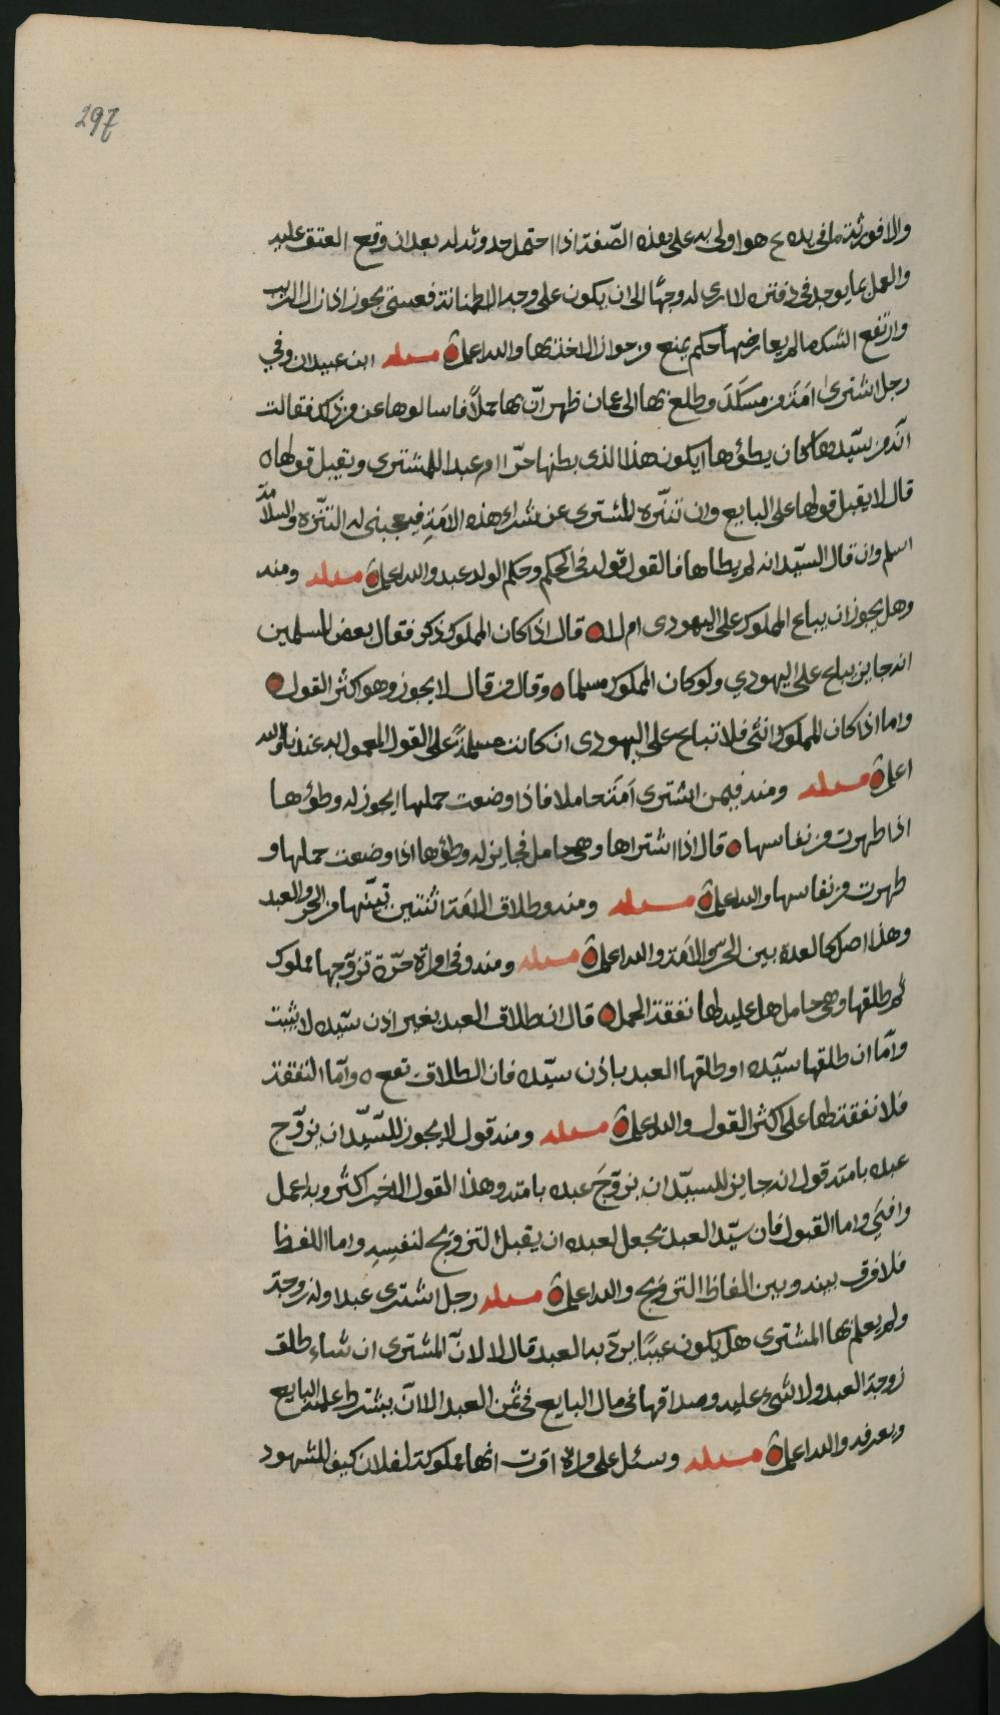 297
والا فورثته ما في يده ع هو اولى به على هذه الصّفة اذا احتمل حدوثه له بعد ان وقع العتق عليه
والعمل بما يوجد في دفتره لا ارى له وجهًا الى ان يكون على وجه الاطمئنانة فعسى يجوز اذا زال الريب
وارتفع الشك ما لم يعارضها حكم يمنع من جواز الاخذ بها والله اعلم مسئله ابن عبيدان وفي
رجل اشترى امَةً من مسكَدَ وطلع بها الى عمان ظهر انّ بها حملاً فاسالوها عن من ذلك فقالت
انّه من سيّدها كان يطؤها ايكون هذا الذي ببطنها حرّا ام عبدا للمشترى ويقبل قولها
قال لا يقبل قولها على البايع وان تنزّه المشترى عن شراء هذه الامَةِ فيعجبنى له التنزه والسلامة
اسلم وان قال السيّد انه لم يطاها فالقول قوله في الحكم وحكم الولد عبد والله اعلم مسئله ومنه
وهل يجوز ان يباع المملوك على اليهودى ام لا قال اذا كان المملوك ذكر فقال بعض المسلمين
انه جايز يباع على اليهودي ولو كان المملوك مسلما وقال من قال لا يجوز وهو اكثر القول
واما اذا كان المملوك انثى فلا تباع على اليهودى ان كانت مسلمةً على القول المعمول به عندنا والله
اعلم مسئله ومنه فيمن اشترى اَمَةً حاملا فاذا وضعت حملها ايجوز له وطؤها
اذا طهرت من نفاسها قال اذا اشتراها وهي حامل فجايز له وطؤها اذا وضعت حملها و
طهرت من نفاسها والله اعلم مسئله ومنه وطلاق الامَة اثنتين تبيّنها من الحر والعبد
وهذا اصل العدة بين الحر والامَة والله اعلم مسئله ومنه وفي امراة حرّة تزوّجها مملوك
ثم طلقها وهي حامل هل عليه لها نفقة الحمل قال ان طلاق العبد بغير اذن سيّده لا يثبت
وامّا ان طلقها سيّده او طلقها العبد باذن سيّده فان الطلاق تقع وامّا النفقة
فلا نفقة لها على اكثر القول والله اعلم مسئله ومنه قول لا يجوز للسّيّد ان يزوّج
عبده بامته قول انه جايز للسيّد ان يزوّجَ عبده بامته وهذا القول الاخير اكثر وبه اعمل
وافتي واما القبول فان سيّد العبد يجعل لعبده ان يقبل التزويج لنفسِه واما اللفظ
فلا فرق بينه وبين الفاظ التزويج والله اعلم مسئله رجل اشترى عبدا وله زوجة
ولم يعلم بها المشترى هل يكون عيبًا يردّ به العبد قال لا لانّ المشترى ان شاء طلق
زوجة العبد ولا شيء عليه وصداقها في مال البايع في ثمن العبد الا انّ يشترط عليه البايع
ويعرفه والله اعلم مسئله وسئل على امراة اقرت انها مملوكة لفلان كيف للشهود